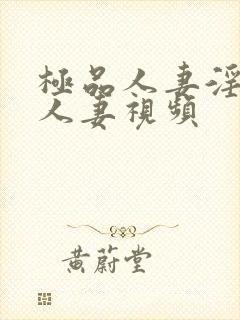 極品人妻淫
人妻視頻
黃蔚堂